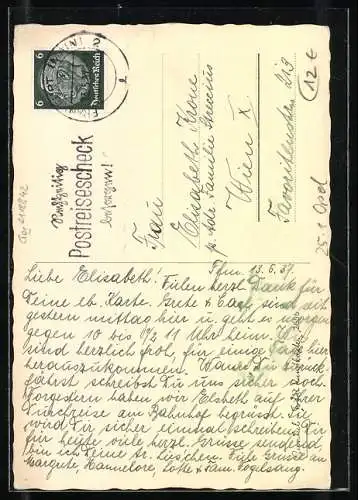 6 Deutsches Reich 6
Rechtzeitig
Postreisescheck
besorgen!
12 €
Frau
Elisabeth Krone
p. Adr. Familie
Wien X
Favoritenstr. 213
Pfm. 13. 6. 39.
Liebe Elisabeth! Vielen herzl. Dank für
Deine lb. Karte. Grete & sind seit
gestern mittag hier u. geht es morgen
gegen 10 bis 1/2 11 Uhr heim. Wir
sind herzlich froh, für einige Tage hier
herauszukommen. Wann Du
schreibst Du uns sicher noch.
Vorgestern haben wir Elsbeth auf ihrer
Durchreise am Bahnhof begrüsst. Sie
wird Dir sicher einmal schreiben. Dir
für heute viele herzl. Grüsse sendend
bin ich Deine tr. Lieschen. Viele Grüsse an
Margrete, Hannelore, Lotte & Fam. Vogelsang.